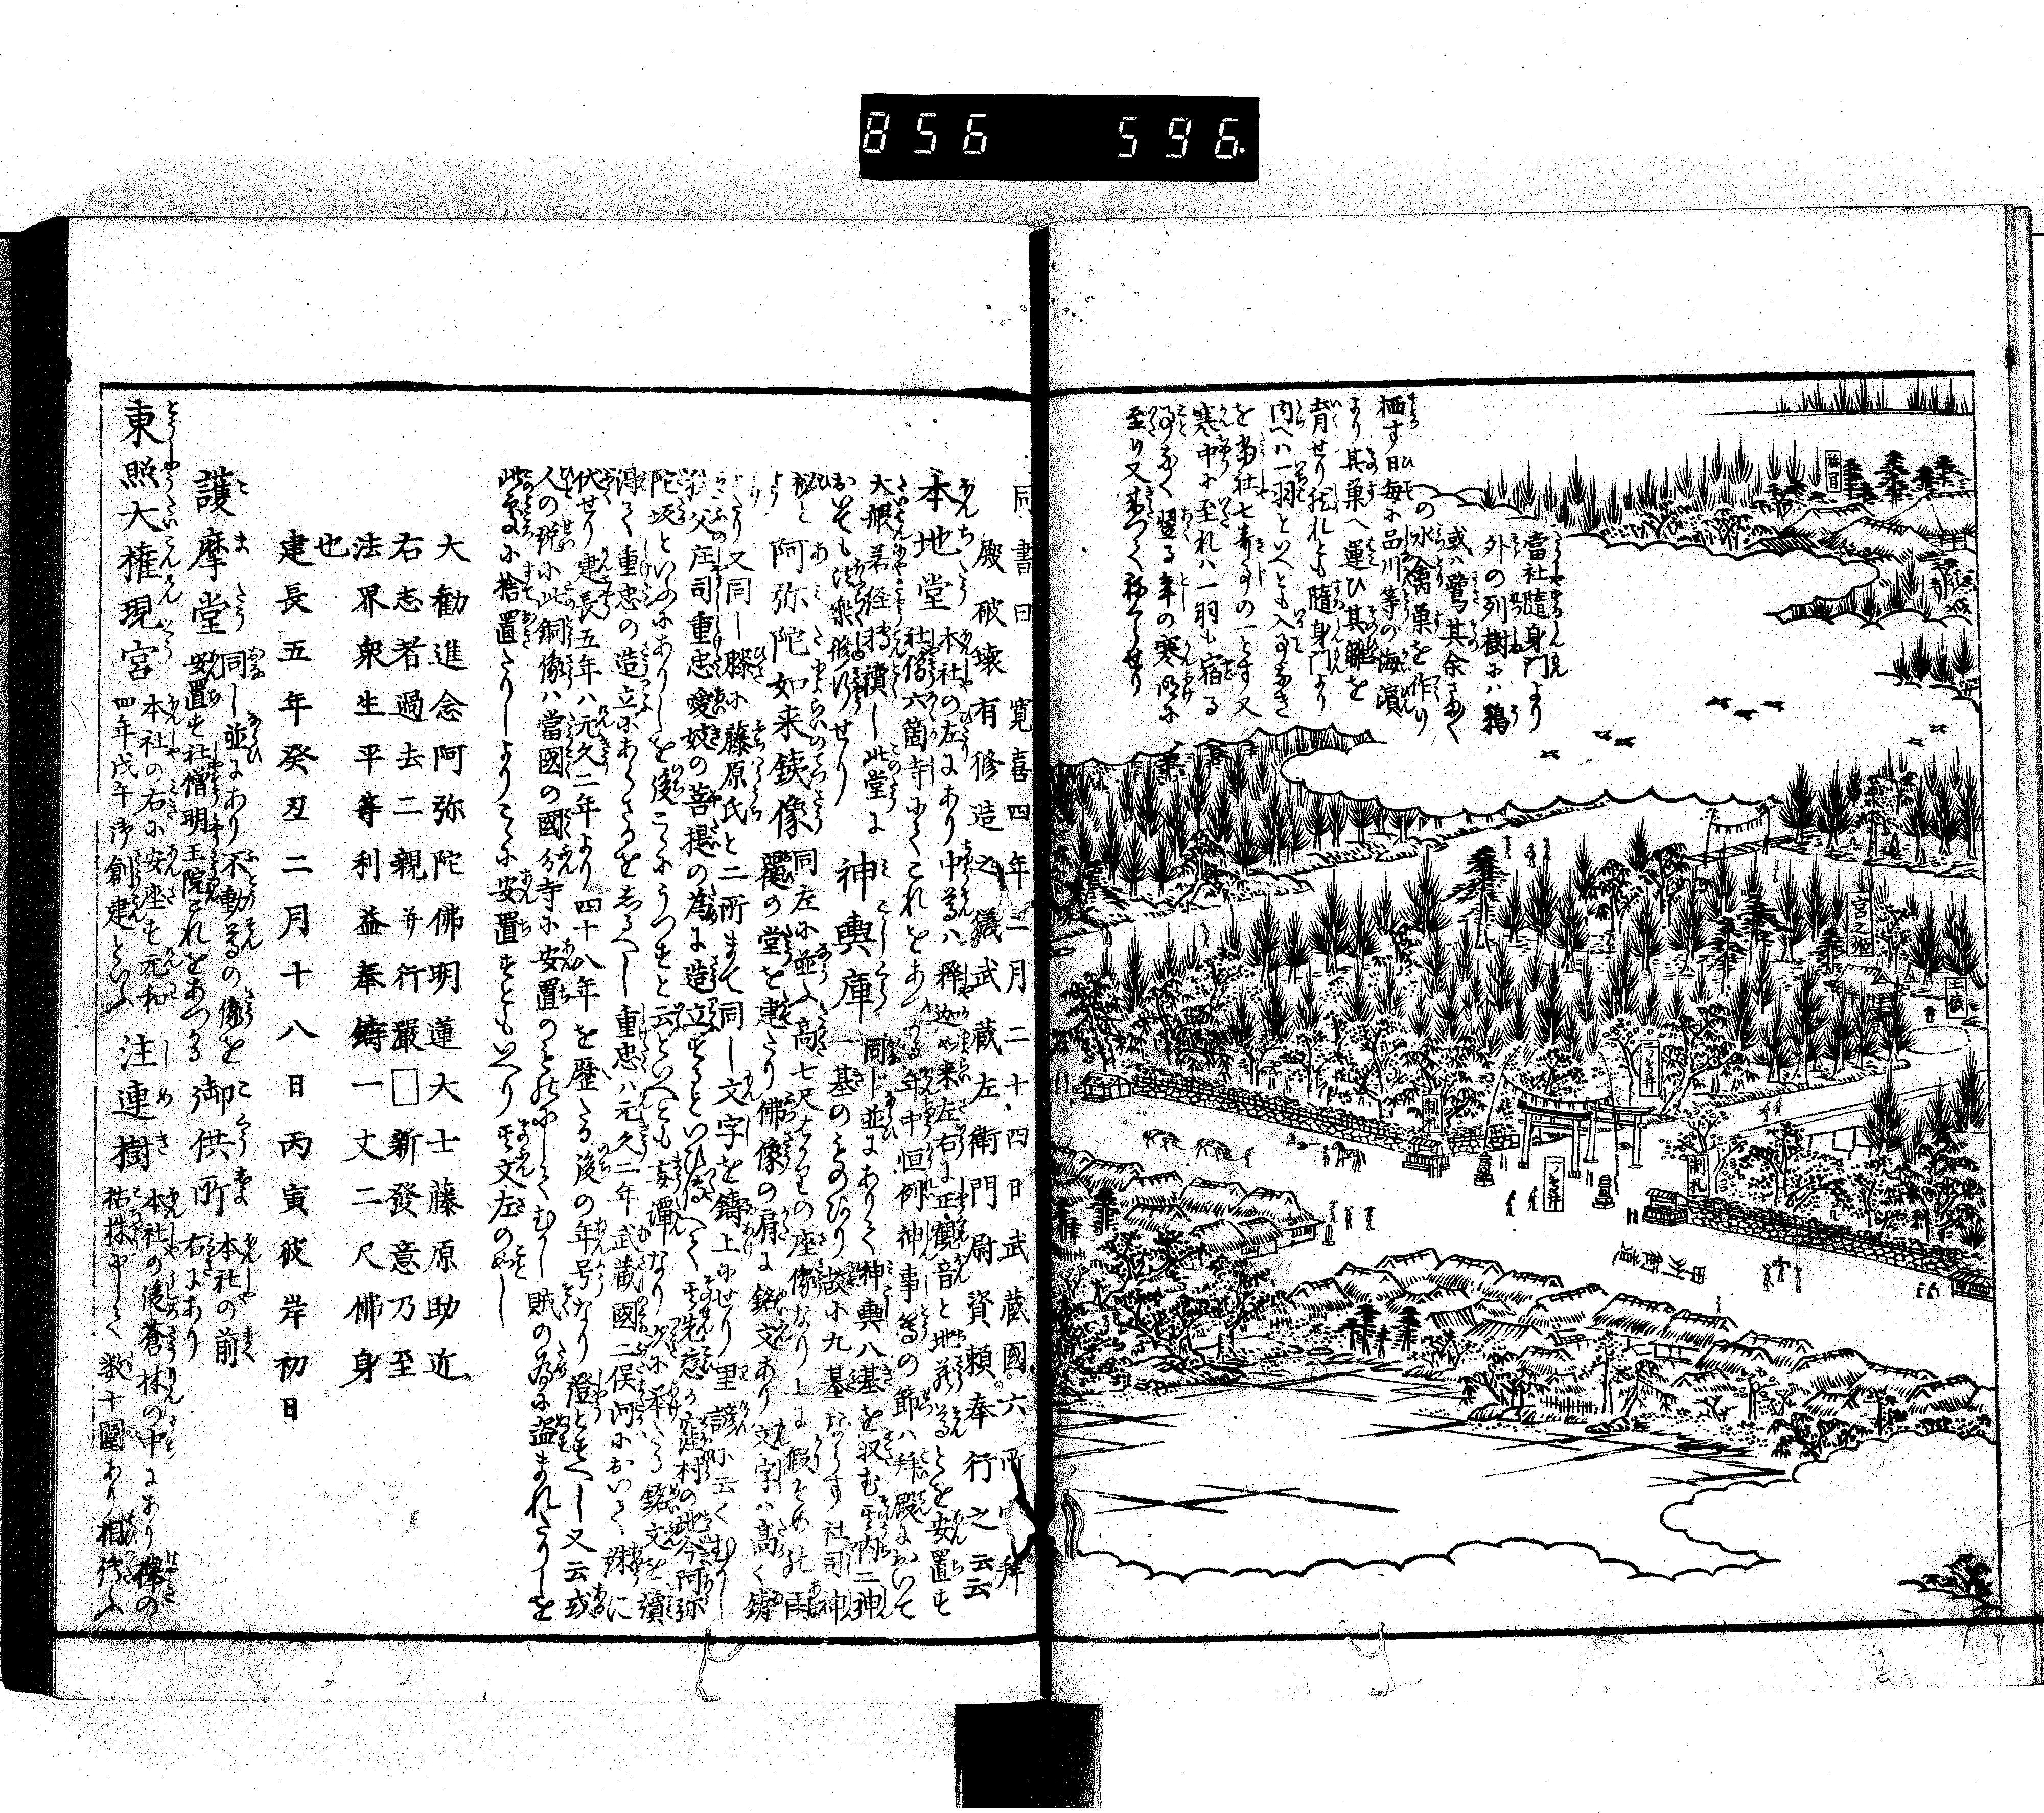 856 596.
當社隨身門より
外の列樹にハ鵜
或ハ鷺其余さ
の水禽巣を作り
栖す日毎に品川等の海濱
より其巣へ運ひ其雛を
育せり然れとも隨身門より
内へハ一羽といへとも入る事なき
を當社七奇事の一とす又
寒中に至れハ一羽も宿る
事なく翌る年の寒明に
至り又来つて
宮之姫
二ノ鳥井
制札
一ノ鳥井
制札
甲州街道
同書曰寛喜四年二月二十四日武蔵國六所宮拜
殿破壊有修造之儀武藏左衛門尉資頼奉行之云云
本地堂 本社の左にあり中尊ハ釋迦如来左右に正觀音と地蔵尊とを安置す
社僧六箇寺にてこれをあつかる年中恒例神事等の節ハ拜殿において
大般若経転讀し此堂に
おいても法楽修行せり
神輿庫 同し並にありて神輿八基を収む其内二神
一基のものあり故に九基ならす社司神
秘と
阿弥陀如来鉄像 同左に並ふ高七尺はかりの座像なり上に假そめの雨
覆の堂を建たり佛像の肩に銘文あり文字ハ高く鋳
たり又同し膝に藤原氏と二所まて同し文字を鋳上にせり里諺に云くむかし
秩父庄司重忠愛妓の菩提の為に造立すといひ傳へて其先恋か窪村の地今阿弥
陀坂といふにありしを後こゝにうつすと云といへとも妄譚なり次に挙たる銘文を讀
得て重忠の造立にあらさるをしるへし重忠ハ元久二年武蔵國二俣河において誅に
伏せり建長五年ハ元久二年より四十八年を歴たる後の年号なり證とすへし又云或
人の説に此銅像ハ當國の國分寺に安置のものにしてむかし賊の為に盗まれたりしを
此處に捨置たりしよりこゝに安置すともいへり其文左のことし
大勸進念阿弥陀佛明蓮大士藤原助近
右志者過去二親并行嚴□新發意乃至
法界衆生平等利益奉鋳一丈二尺佛身
也
建長五年癸丑二月十八日丙寅彼岸初日
護摩堂 同し並にあり不動尊の像を
安置す社僧明王院これをあつかる
御供所 本社の前
右にあり
東照大権現宮 本社の右に安座す元和
四年戊午御創建といふ
注連樹 本社の後蒼林の中にあり欅の
枯株にして数十圍あり相傳ふ